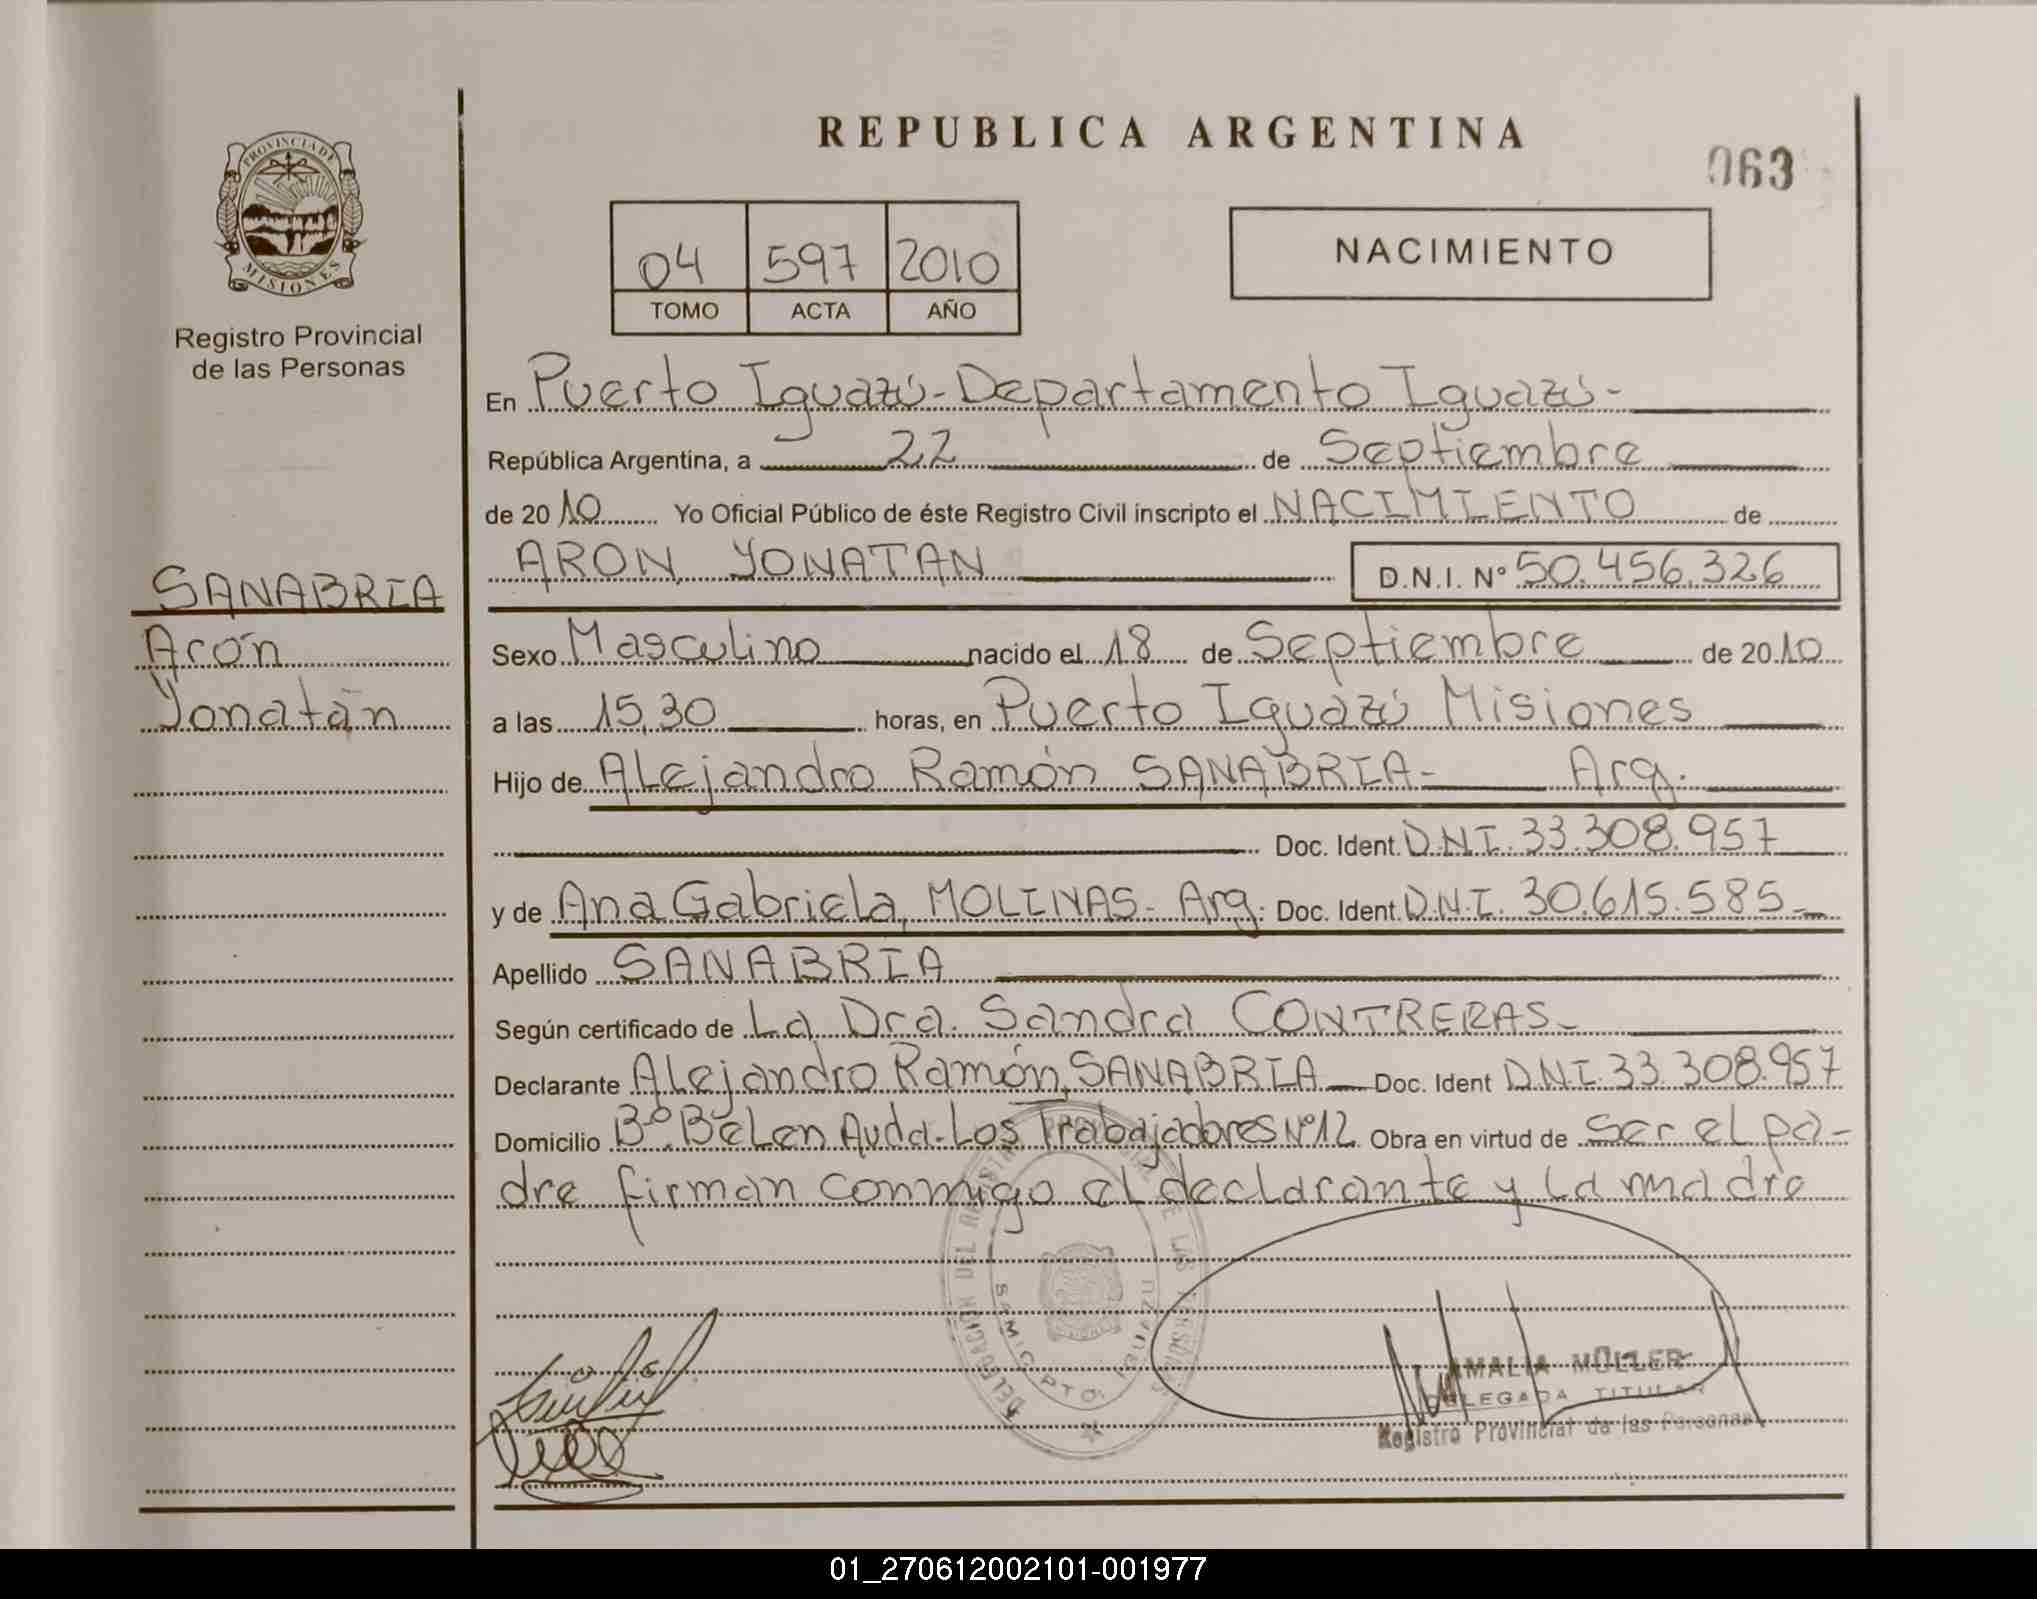 REPUBLICA ARGENTINA
063
PROVINCIA DE
MISIONES
Registro Provincial
de las Personas
04 597 2010
TOMO ACTA AÑO
NACIMIENTO
En Puerto Iguazú-Departamento Iguazú-
República Argentina, a 22 de Septiembre
de 2010 Yo Oficial Público de éste Registro Civil inscripto el NACIMIENTO de
ARON, YONATAN D.N.I. Nº 50.456.326
SANABRIA
Arón
Yonatán
Sexo Masculino nacido el 18 de Septiembre de 2010
a las 15,30 horas, en Puerto Iguazú Misiones
Hijo de Alejandro Ramón SANABRIA- Arg.
Doc. Ident. D.N.I. 33.308.957
y de Ana Gabriela, MOLINAS- Arg. Doc. Ident. D.N.I. 30.615.585-
Apellido SANABRIA
Según certificado de La Dra. Sandra CONTRERAS-
Declarante Alejandro Ramón, SANABRIA Doc. Ident D.N.I. 33.308.957
Domicilio Bº.Belen Avda.Los Trabajadores Nº12 Obra en virtud de ser el pa-
dre firman conmigo el declarante y la madre
AMALIA MÜLLER
DELEGADA TITULAR
Registro Provincial de las Personas
01_270612002101-001977